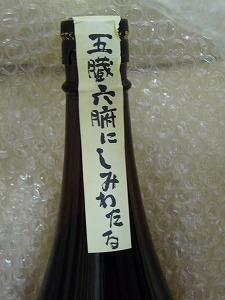 五臓六腑にしみわたる